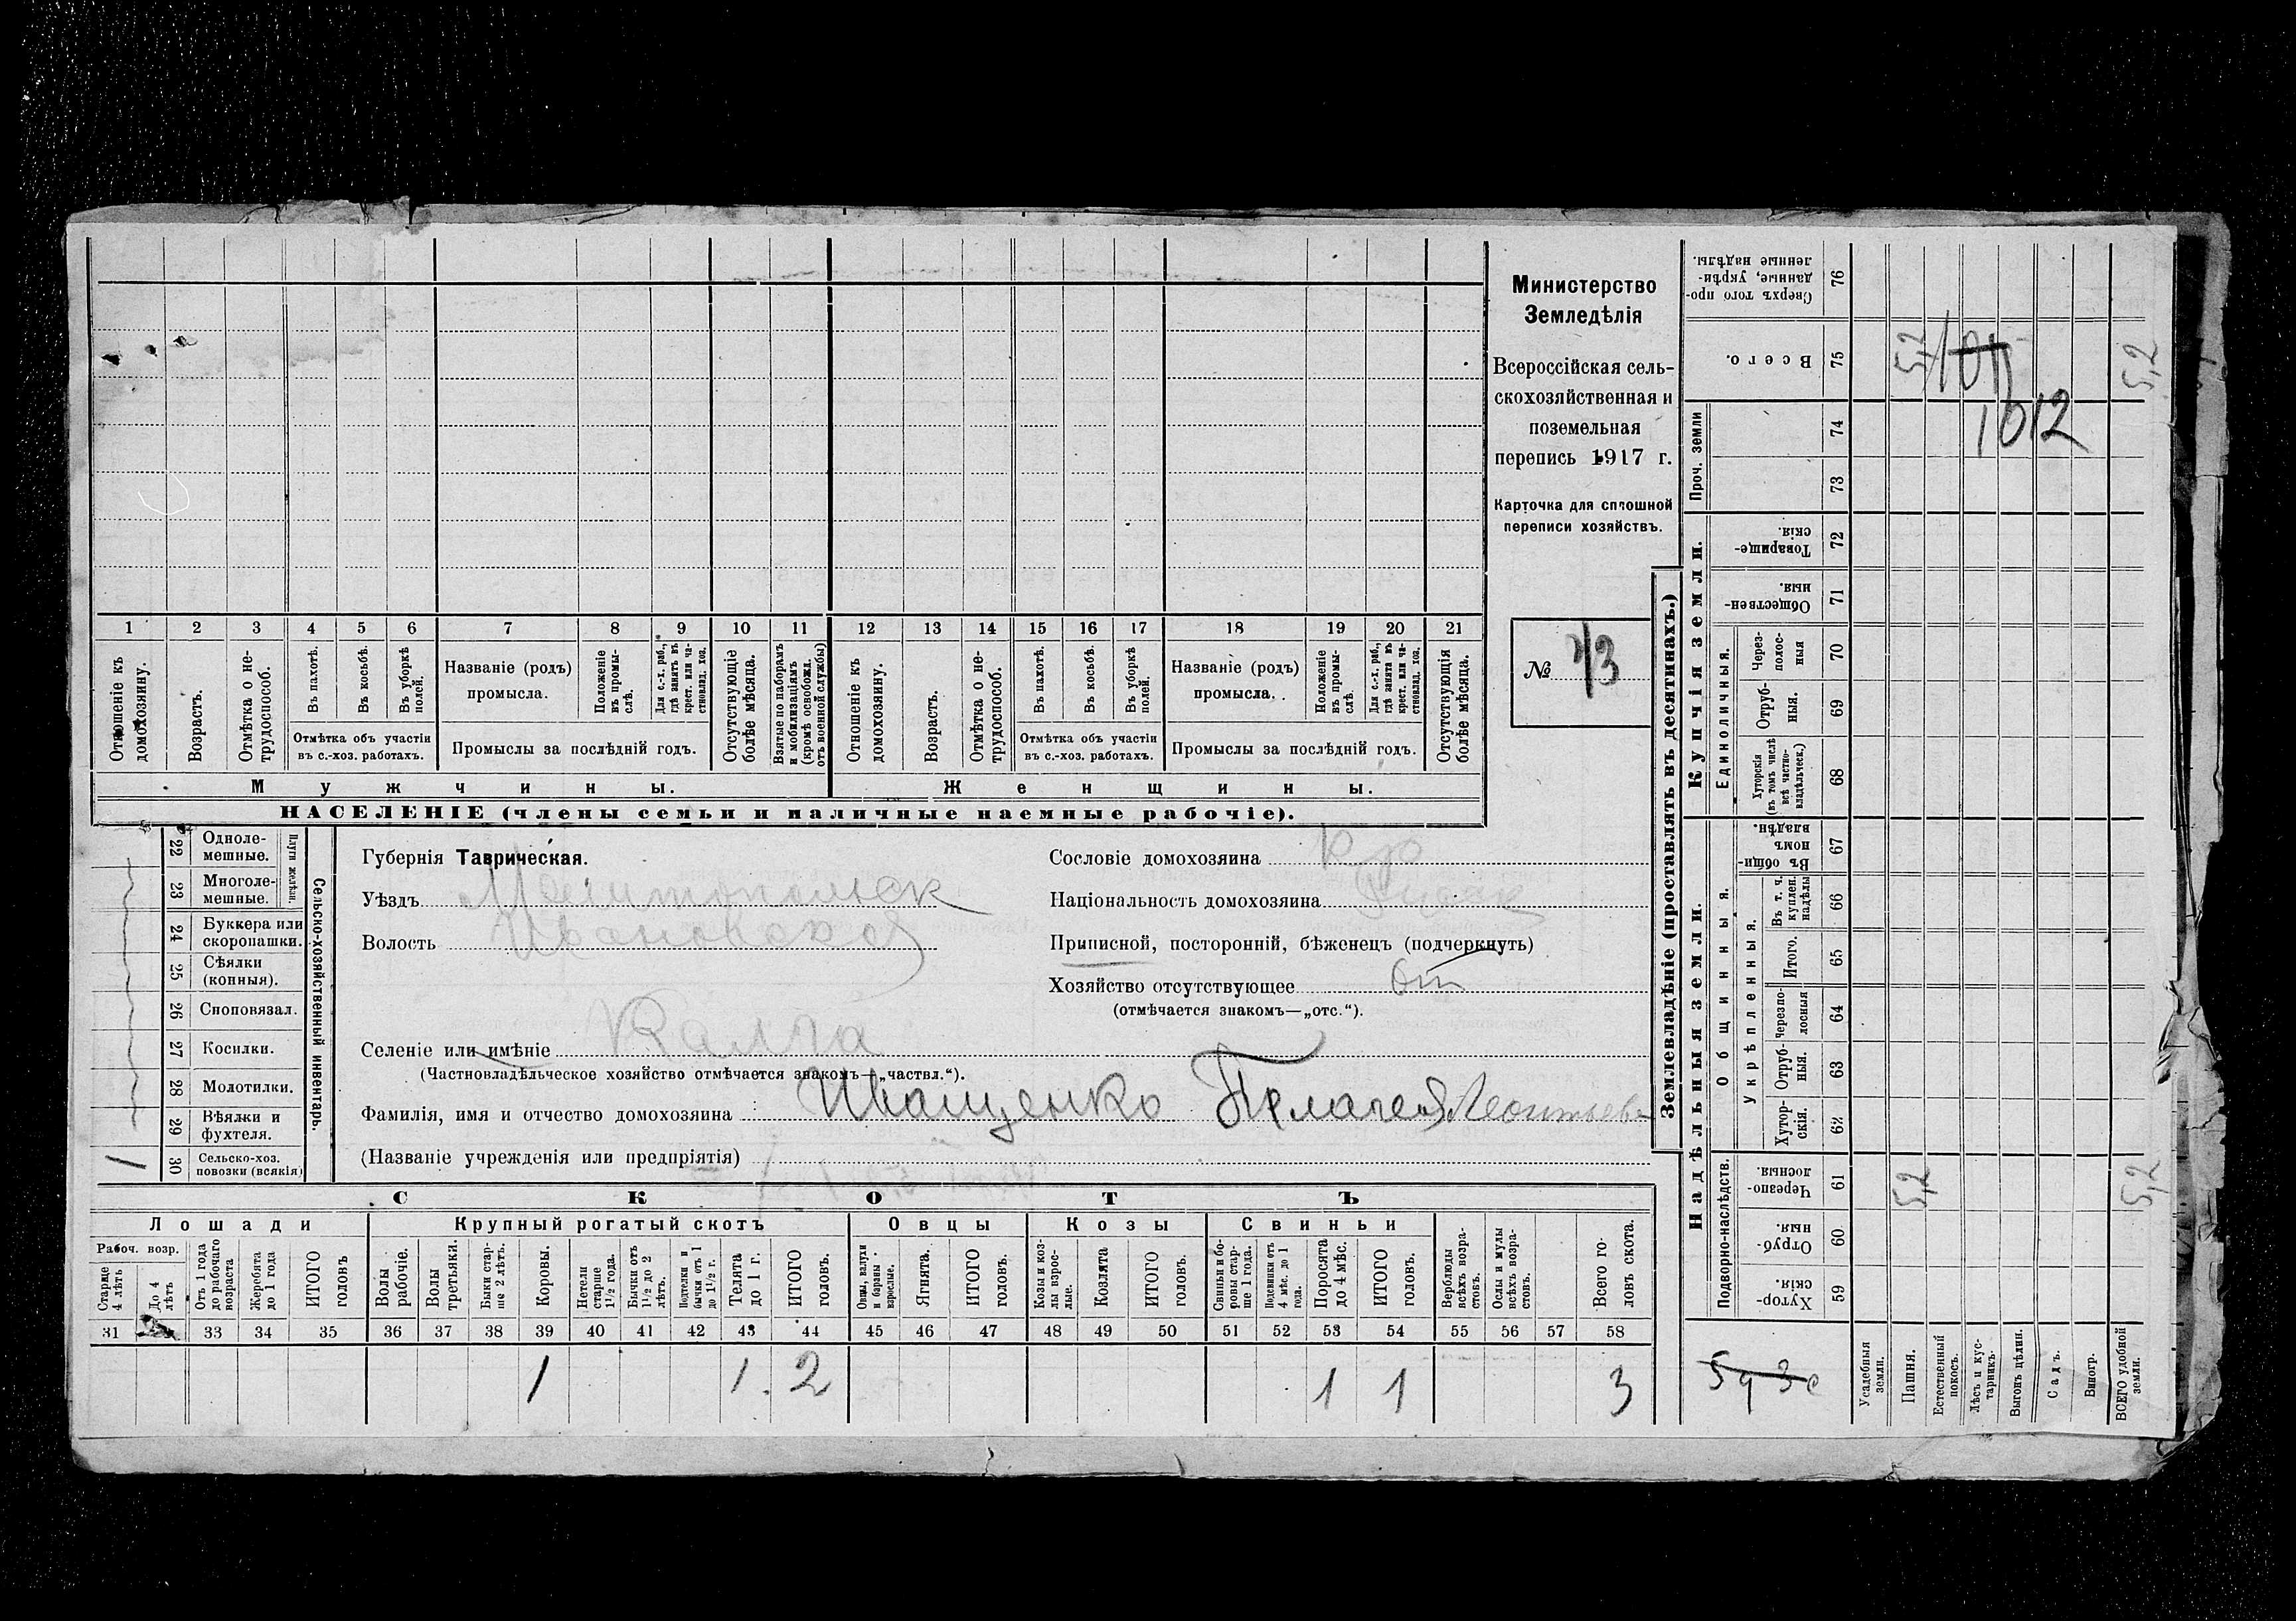 1 2 3 4 5 6 7 8 9 10 11 12 13 14 15 16 17 18 19 20 21
Отношеніе къ домохозяину.
Возрастъ.
Отмѣтка о не-трудоспособ.
Въ пахотѣ.
Въ косьбѣ.
Въ уборкѣ полей.
Отмѣтка объ участіи
въ с.-хоз. работахъ.
Названіе (родъ)
промысла.
Положеніе въ промы-слѣ.
Для с.-х. раб., гдѣ занятъ въ крест. или ча-стновлад. хоз.
Промыслы за послѣдній годъ.
Отсутствующіе болѣе мѣсяца.
Взятые по наборамъ и мобилизаціямъ (кромѣ освобожд. отъ военной службы)
Отношеніе къ домохозяину.
Возрастъ.
Отмѣтка о не-трудоспособ.
Въ пахотѣ.
Въ косьбѣ.
Въ уборкѣ полей.
Отмѣтка объ участіи
въ с.-хоз. работахъ.
Названіе (родъ)
промысла.
Положеніе въ промы-слѣ.
Для с.-х. раб., гдѣ занятъ въ крест. или ча-стновлад. хоз.
Промыслы за послѣдній годъ.
Отсутствующія болѣе мѣсяца.
Мужчины.
Женщины.
НАСЕЛЕНІЕ (члены семьи и наличные наемные рабочіе).
Министерство
Земледѣлія
Всероссійская сель-
скохозяйственная и
поземельная
перепись 1917 г.
Карточка для сплошной
переписи хозяйствъ.
№ 43
Сельско-хозяйственный инвентарь.
Плуги желѣзн.
22 Одноле-
мешные.
23 Многоле-
мешные.
24 Буккера или
скоропашки.
25 Сѣялки
(конныя).
26 Сноповязал.
27 Косилки.
28 Молотилки.
29 Вѣялки и
фухтеля.
1 30 Сельско-хоз.
повозки (всякія)
Губернія Таврическая.
Уѣздъ Мелитопольск
Волость Ивановская
Селеніе или имѣніе Калга
(Частновладѣльческое хозяйство отмѣчается знакомъ—„частвл.“).
Фамилія, имя и отчество домохозяина Иващенко Пелагея Леонтьев
(Названіе учрежденія или предпріятія)
Сословіе домохозяина Кр
Національность домохозяина
Приписной, посторонній, бѣженецъ (подчеркнуть)
Хозяйство отсутствующее
(отмѣчается знакомъ—„отс.“).
СКОТЪ
Лошади
Крупный рогатый скотъ
Овцы
Козы
Свиньи
Рабоч. возр.
Старше 4 лѣтъ
До 4 лѣтъ
Отъ 1 года до рабочаго возраста
Жеребята до 1 года
ИТОГО головъ
Волы рабочіе.
Волы третьяки.
Быки стар-ше 2 лѣтъ.
Коровы.
Нетели старше 1½ года.
Бычки отъ 1½ до 2 лѣтъ.
Подтелки и бычки отъ 1 до 1½ г.
Телята до 1 г.
ИТОГО головъ.
Овцы, валухи и бараны взрослые.
Ягнята.
ИТОГО головъ.
Козы и коз-лы взрос-лые.
Козлята
ИТОГО головъ.
Свиньи и бо-ровы стар-ше 1 года.
Подсвинки отъ 4 мѣс. до 1 года.
Поросята до 4 мѣс.
ИТОГО головъ.
Верблюды всѣхъ возра-стовъ.
Ослы и мулы всѣхъ возра-стовъ.
Всего го-ловъ скота.
31 33 34 35 36 37 38 39 40 41 42 43 44 45 46 47 48 49 50 51 52 53 54 55 56 57 58
1 1 2 1 1 3
Землевладѣніе (проставлять въ десятинахъ.)
Надѣльныя земли.
Купчія земли.
Проч. земли
Подворно-наслѣдств.
Общинныя.
Укрѣпленныя.
Единоличныя.
Сверхъ того про-данные, укрѣп-ленные надѣлы. 76
Всего. 75 5,2 5,2
74 1012
73
Товарище-скія. 72
Обществен-ныя. 71
Через-полос-ныя 70
Отруб-ныя. 69
Хуторскія (въ томъ числѣ всѣ частно-владѣльческ.) 68
Въ общин-номъ владѣн. 67
Въ т. ч. куплен. надѣлы 66
Итого. 65
Черезпо-лосныя 64
Отруб-ныя. 63
Хутор-скія. 62
Черезпо-лосныя. 61 5,2 5,2
Отруб-ныя. 60
Хутор-скія. 59
Усадебныя земли.
Пашня.
Естественный покосъ.
Лѣсъ и кус-тарникъ.
Выгонъ цѣлин.
Садъ.
Виногр.
ВСЕГО удобной земли.